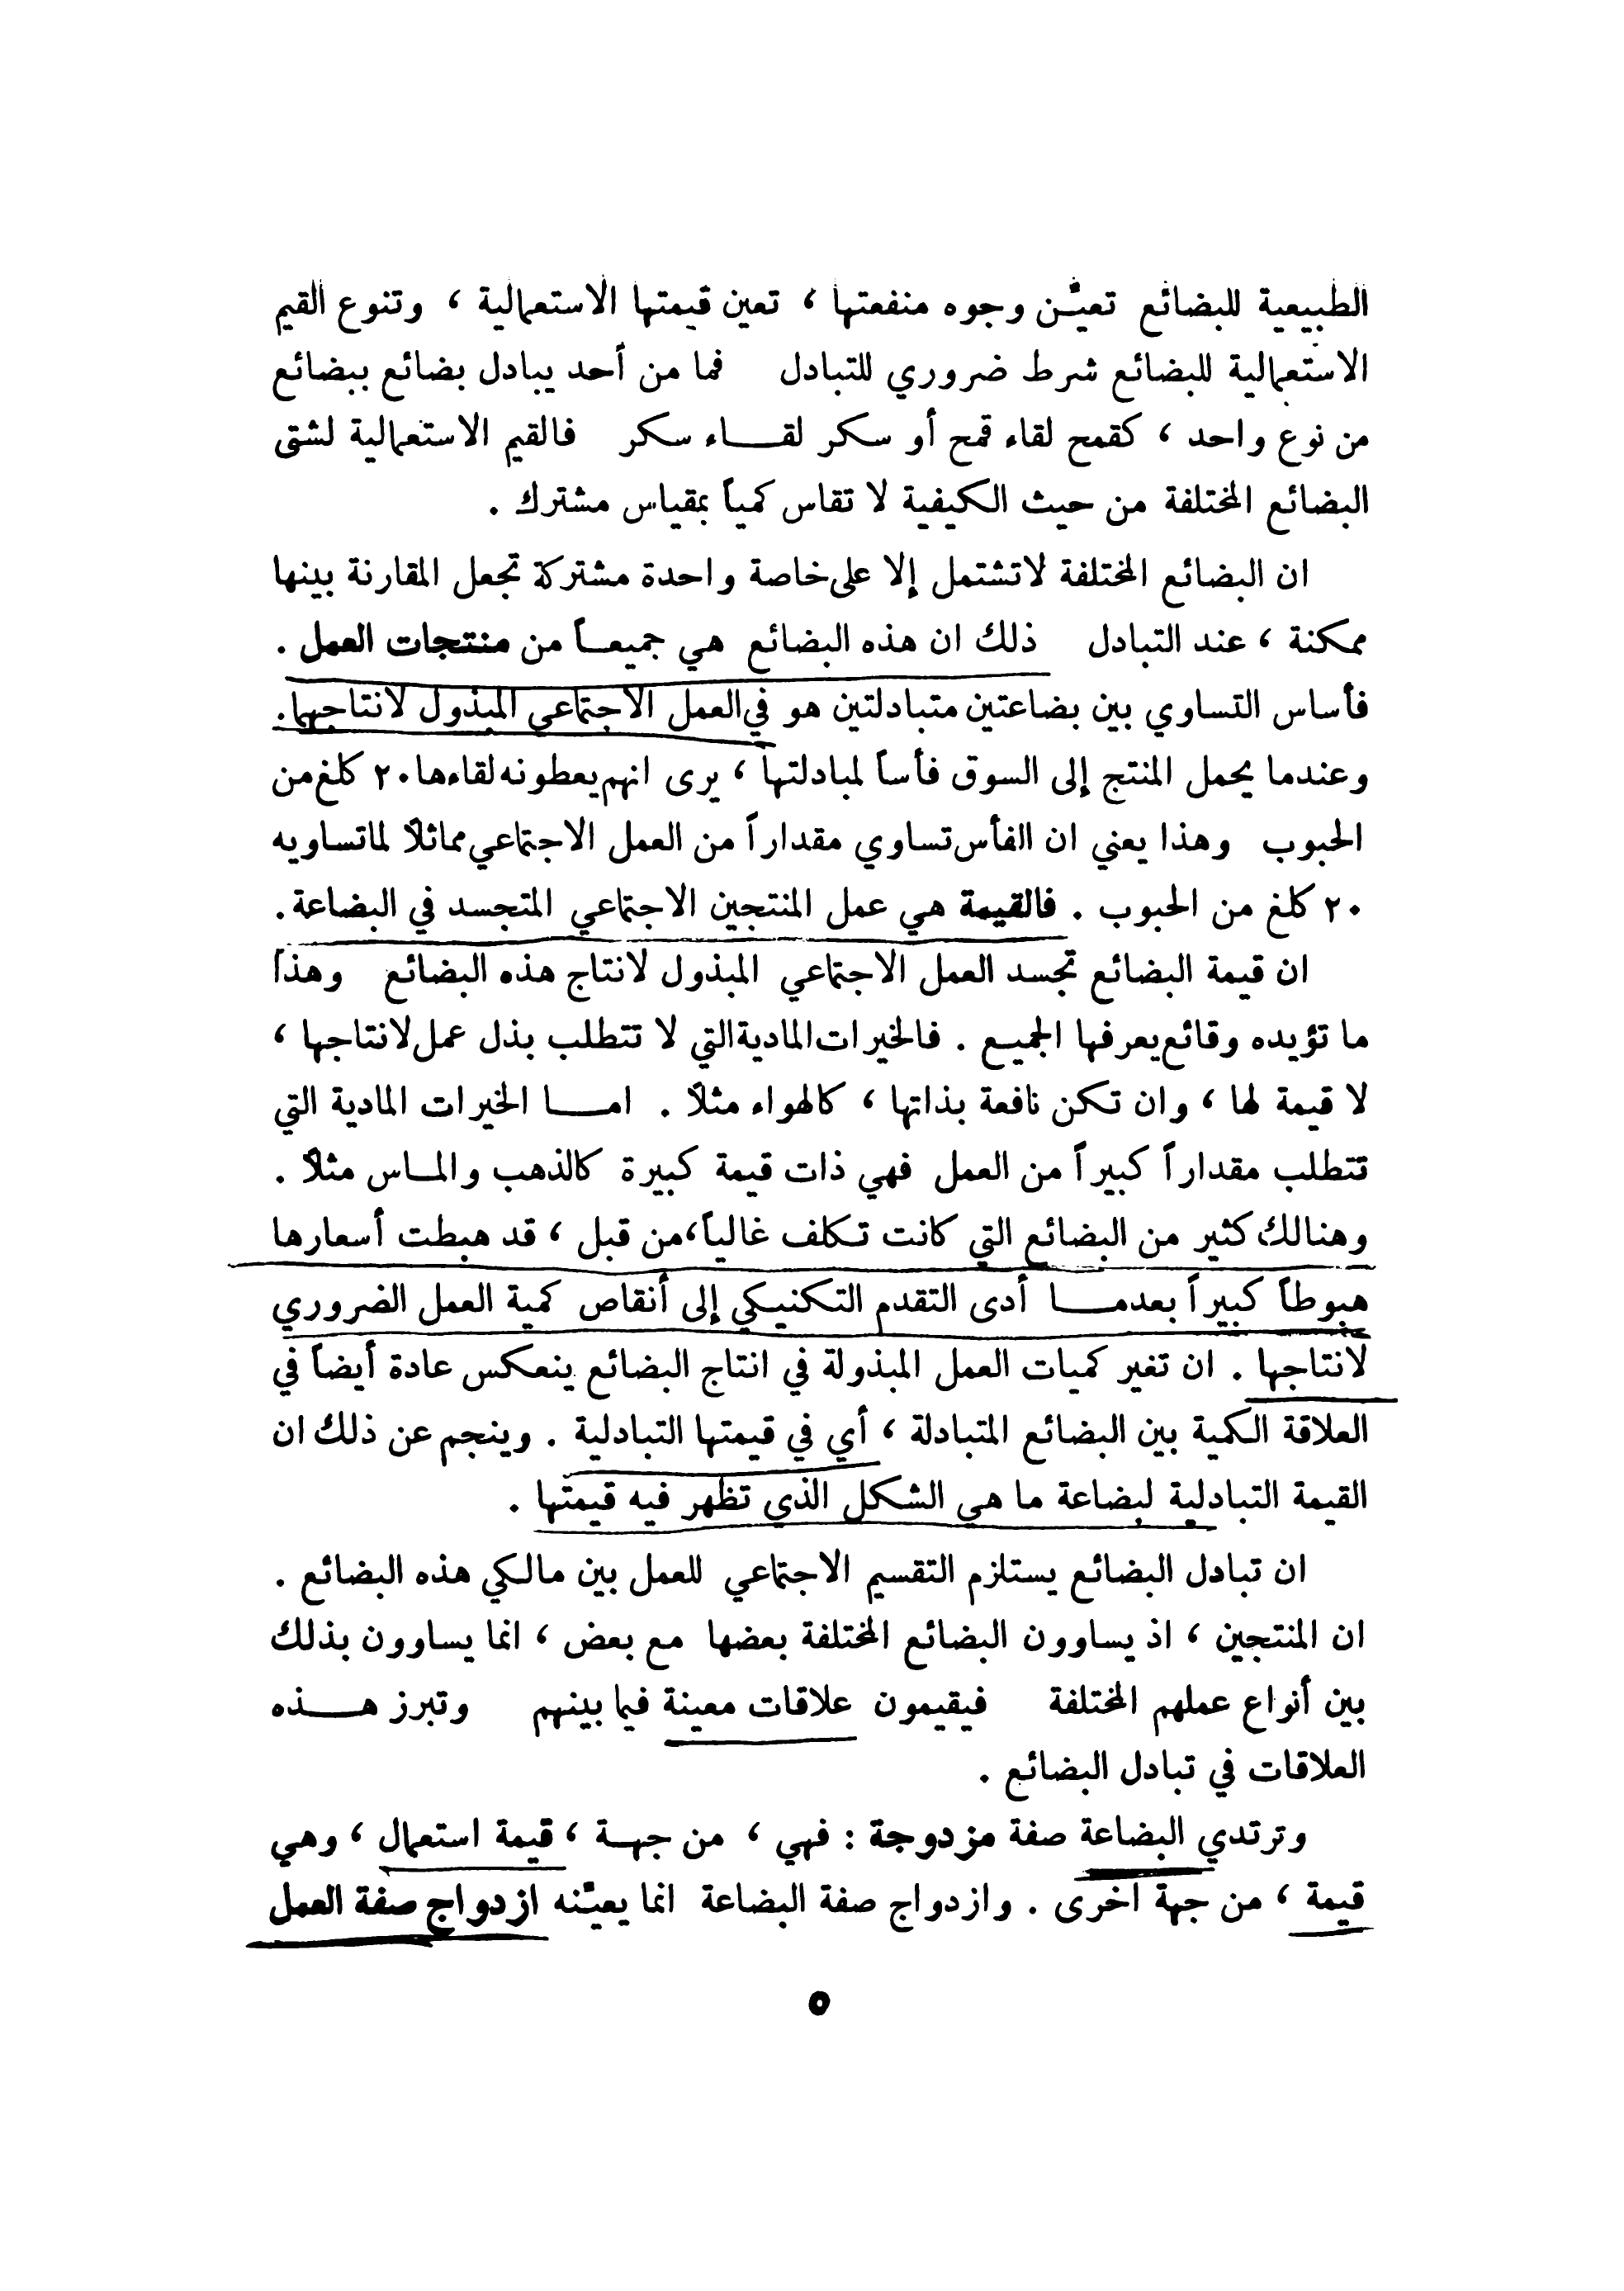 الطبيعية للبضائع تعيّن وجوه منفعتها ، تعين قيمتها الاستعمالية ، وتنوع القيم
الاستعمالية للبضائع شرط ضروري للتبادل فما من أحد يبادل بضائع ببضائع
من نوع واحد ، كقمح لقاء قمح أو سكر لقاء سكر فالقيم الاستعمالية لشتى
البضائع المختلفة من حيث الكيفية لا تقاس كمياً بمقياس مشترك .
ان البضائع المختلفة لا تشتمل إلا على خاصة واحدة مشتركة تجعل المقارنة بينها
ممكنة ، عند التبادل ذلك ان هذه البضائع هي جميعاً من منتجات العمل .
فأساس التساوي بين بضاعتين متبادلتين هو في العمل الاجتماعي المبذول لانتاجهما.
وعندما يحمل المنتج إلى السوق فأساً لمبادلتها ، يرى انهم يعطونه لقاءها ٢٠ كلغ من
الحبوب وهذا يعني ان الفأس تساوي مقداراً من العمل الاجتماعي مماثلاً لما تساويه
٢٠ كلغ من الحبوب . فالقيمة هي عمل المنتجين الاجتماعي المتجسد في البضاعة .
ان قيمة البضائع تجسد العمل الاجتماعي المبذول لانتاج هذه البضائع وهذا
ما تؤيده وقائع يعرفها الجميع . فالخيرات المادية التي لا تتطلب بذل عمل لانتاجها ،
لا قيمة لها ، وان تكن نافعة بذاتها ، كالهواء مثلاً . اما الخيرات المادية التي
تتطلب مقداراً كبيراً من العمل فهي ذات قيمة كبيرة كالذهب والماس مثلاً .
وهنالك كثير من البضائع التي كانت تكلف غالياً،من قبل ، قد هبطت أسعارها
هبوطاً كبيراً بعدما أدى التقدم التكنيكي إلى أنقاص كمية العمل الضروري
لانتاجها . ان تغير كميات العمل المبذولة في انتاج البضائع ينعكس عادة أيضاً في
العلاقة الكمية بين البضائع المتبادلة ، أي في قيمتها التبادلية . وينجم عن ذلك ان
القيمة التبادلية لبضاعة ما هي الشكل الذي تظهر فيه قيمتها .
ان تبادل البضائع يستلزم التقسيم الاجتماعي للعمل بين مالكي هذه البضائع .
ان المنتجين ، اذ يساوون البضائع المختلفة بعضها مع بعض ، انما يساوون بذلك
بين أنواع عملهم المختلفة فيقيمون علاقات معينة فيما بينهم وتبرز هذه
العلاقات في تبادل البضائع .
وترتدي البضاعة صفة مزدوجة : فهي ، من جهة ، قيمة استعمال ، وهي
قيمة ، من جهة اخرى . وازدواج صفة البضاعة انما يعيّنه ازدواج صفة العمل
٥